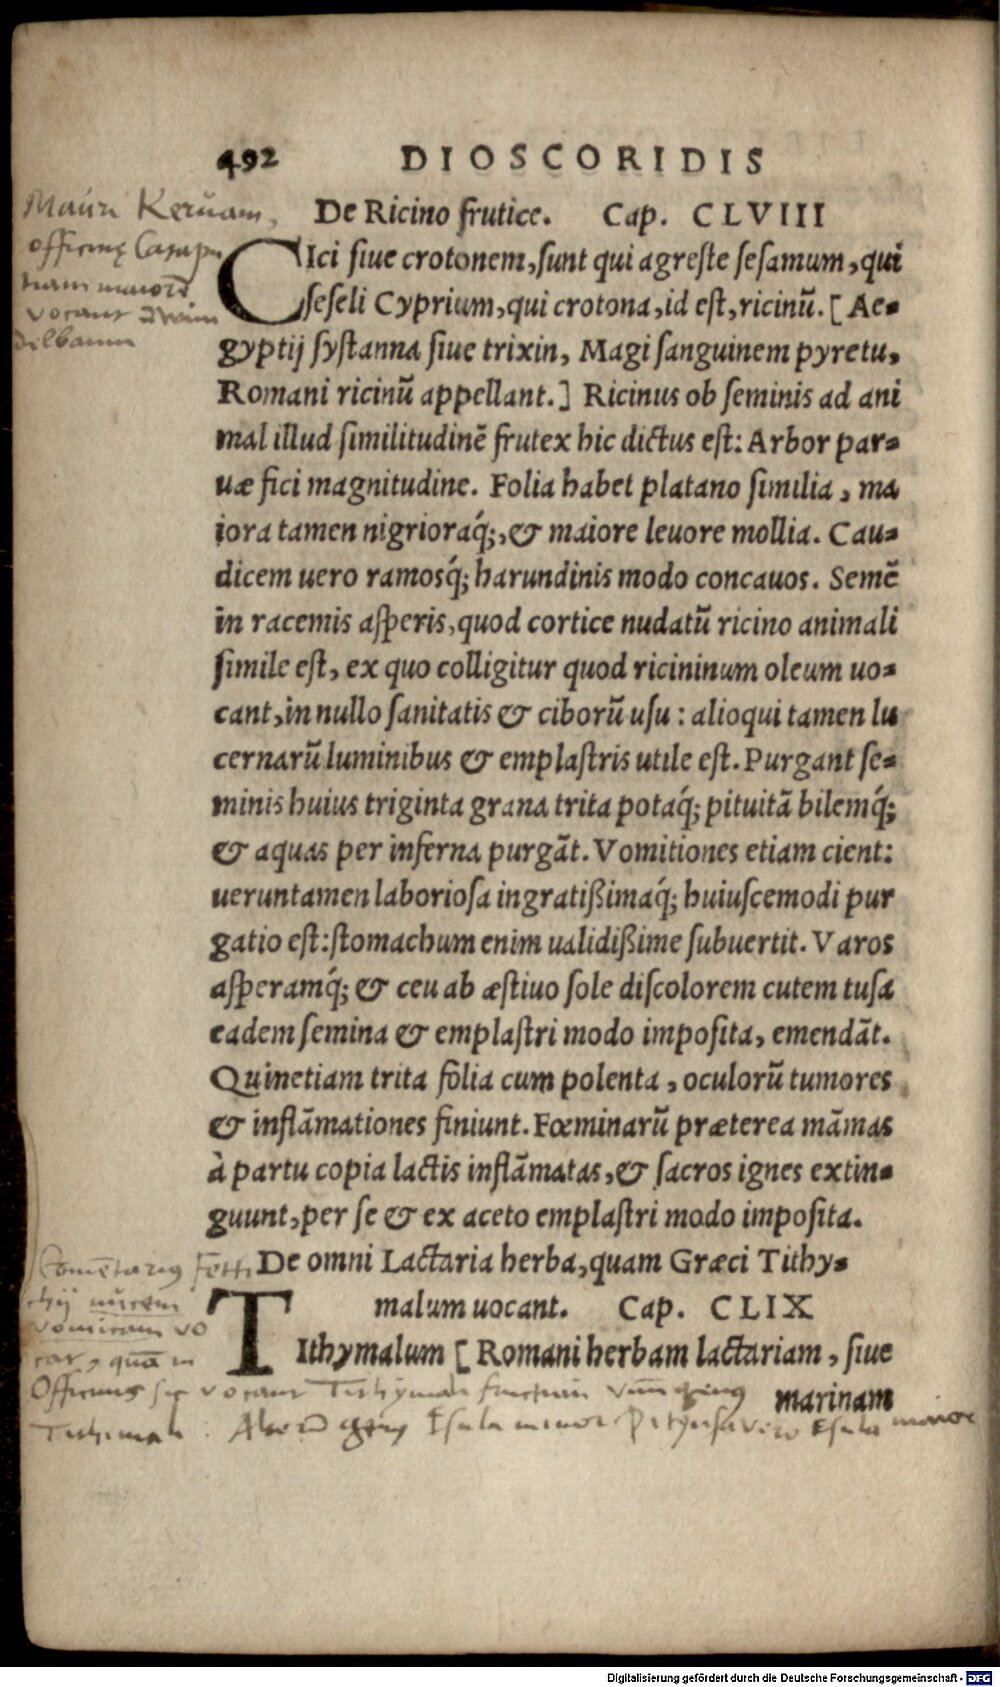 492 DIOSCORIDIS
De Ricino frutice. Cap. CLVIII
CIci siue crotonem, sunt qui agreste sesamum, qui
seseli Cyprium, qui crotona, id est, ricinū. [Ae-
gyptij systanna siue trixin, Magi sanguinem pyretu,
Romani ricinū appellant.] Ricinus ob seminis ad ani
mal illud similitudinē frutex hic dictus est: Arbor par-
uæ fici magnitudine. Folia habet platano similia, ma
iora tamen nigrioraq́;, & maiore leuore mollia. Cau-
dicem uero ramosq́; harundinis modo concauos. Semē
in racemis asperis, quod cortice nudatū ricino animali
simile est, ex quo colligitur quod ricininum oleum uo-
cant, in nullo sanitatis & ciborū usu : alioqui tamen lu
cernarū luminibus & emplastris utile est. Purgant se-
minis huius triginta grana trita potaq́; pituitā bilemq́;
& aquas per inferna purgāt. Vomitiones etiam cient:
ueruntamen laboriosa ingratißimaq́; huiuscemodi pur
gatio est: stomachum enim ualidißime subuertit. Varos
asperamq́; & ceu ab æstiuo sole discolorem cutem tusa
eadem semina & emplastri modo imposita, emendāt.
Quinetiam trita folia cum polenta, oculorū tumores
& inflāmationes finiunt. Fœminarū præterea māmas
à partu copia lactis inflāmatas, & sacros ignes extin-
guunt, per se & ex aceto emplastri modo imposita.
De omni Lactaria herba, quam Græci Tithy-
malum uocant. Cap. CLIX
TIthymalum [Romani herbam lactariam, siue
marinam
Mauri Keruam,
officinę Catapu
tiam maiorē
vocant
nucem
vomicam vo
cat, quā in
Officinis sic vocant Tithymali
Tithimali. Esula minor Pityusa vero Esula maior
Digitalisierung gefördert durch die Deutsche Forschungsgemeinschaft - DFG